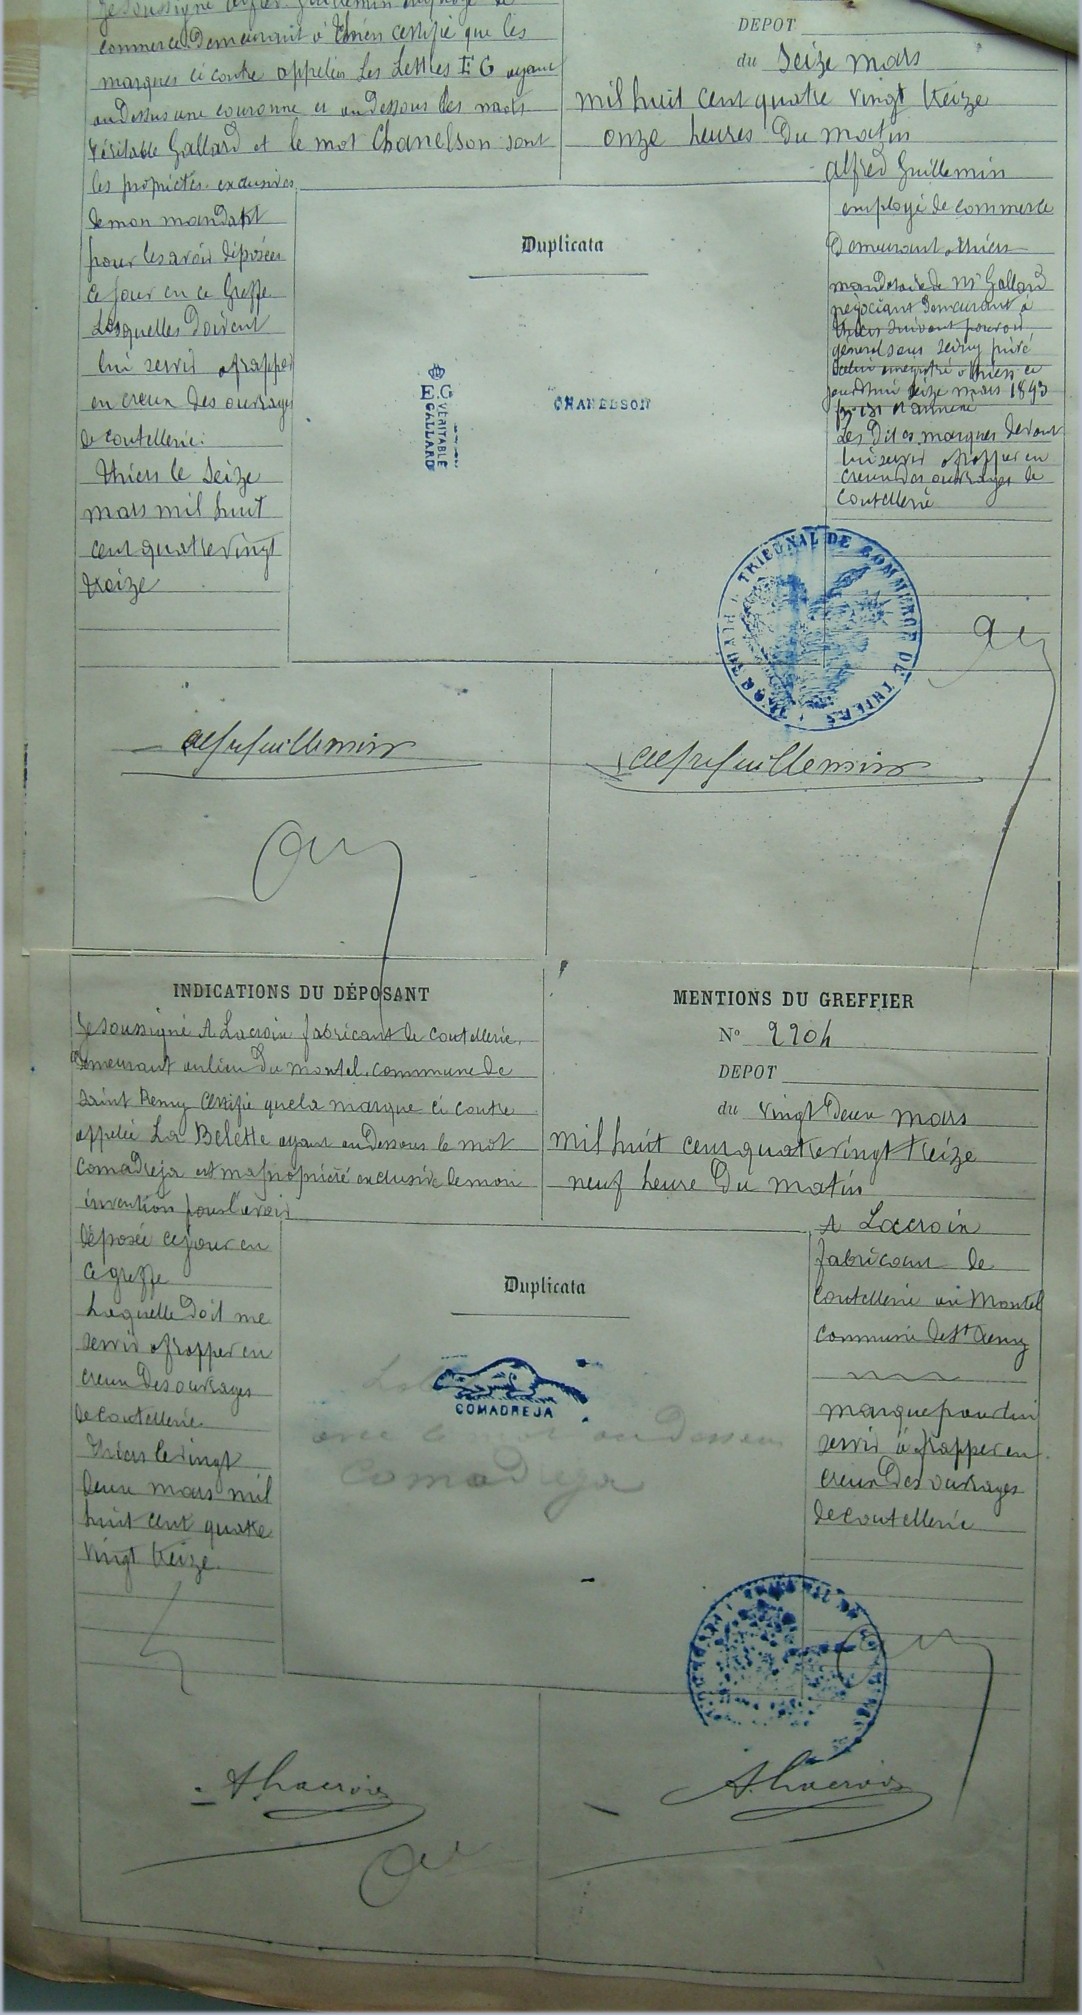 Je soussigné Alfred Guillemin employé de
commerce Demeurant à Thiers certifie que les
marques ci contre appelées Les Lettres E G ayant
au dessus une couronne et au Dessous les mots
Véritable Gallard et le mot Chanelson sont
les propriétés exclusives
de mon mandant
pour les avoir déposées
ce jour en ce Greffe.
Lesquelles doivent
lui servir à frapper
en creux des ouvrages
de coutellerie.
Thiers le Seize
mars mil huit
cent quatre vingt
treize
DEPOT
du Seize mars
mil huit cent quatre vingt treize
onze heures Du matin
Alfred Guillemin
employé de commerce
Demeurant Thiers
mandataire de Mr Gallard
négociant Demeurant à
Thiers suivant pouvoir
général sous seing privé
enregistré à Thiers ce
jourd'hui seize mars 1893
Les Dites marques devant
lui servir à frapper en
creux des ouvrages de
coutellerie
Duplicata
E.G
VÉRITABLE
GALLARD
CHANELSON
TRIBUNAL DE COMMERCE DE THIERS
INDICATIONS DU DÉPOSANT
Je soussigné A Lacroix fabricant de coutellerie,
demeurant au lieu Du Montel, commune de
Saint Remy Certifie que la marque ci contre
appelée La Belette ayant au Dessous le mot
Comadreja est ma propriété exclusive de mon
invention pour l'avoir
déposée ce jour en
ce greffe
Laquelle doit me
servir à frapper en
creux Des ouvrages
de coutellerie.
Thiers le vingt
deux mars mil
huit cent quatre
vingt treize.
MENTIONS DU GREFFIER
No 2204
DEPOT
du vingt Deux mars
mil huit cent quatre vingt treize
neuf heure Du matin
A Lacroix
fabricant de
coutellerie au Montel
commune de St Remy
marque pour lui
servir à frapper en
creux Des ouvrages
de coutellerie
Duplicata
COMADREJA
avec le mot au Dessous
Comadreja
A. Lacroix
A. Lacroix